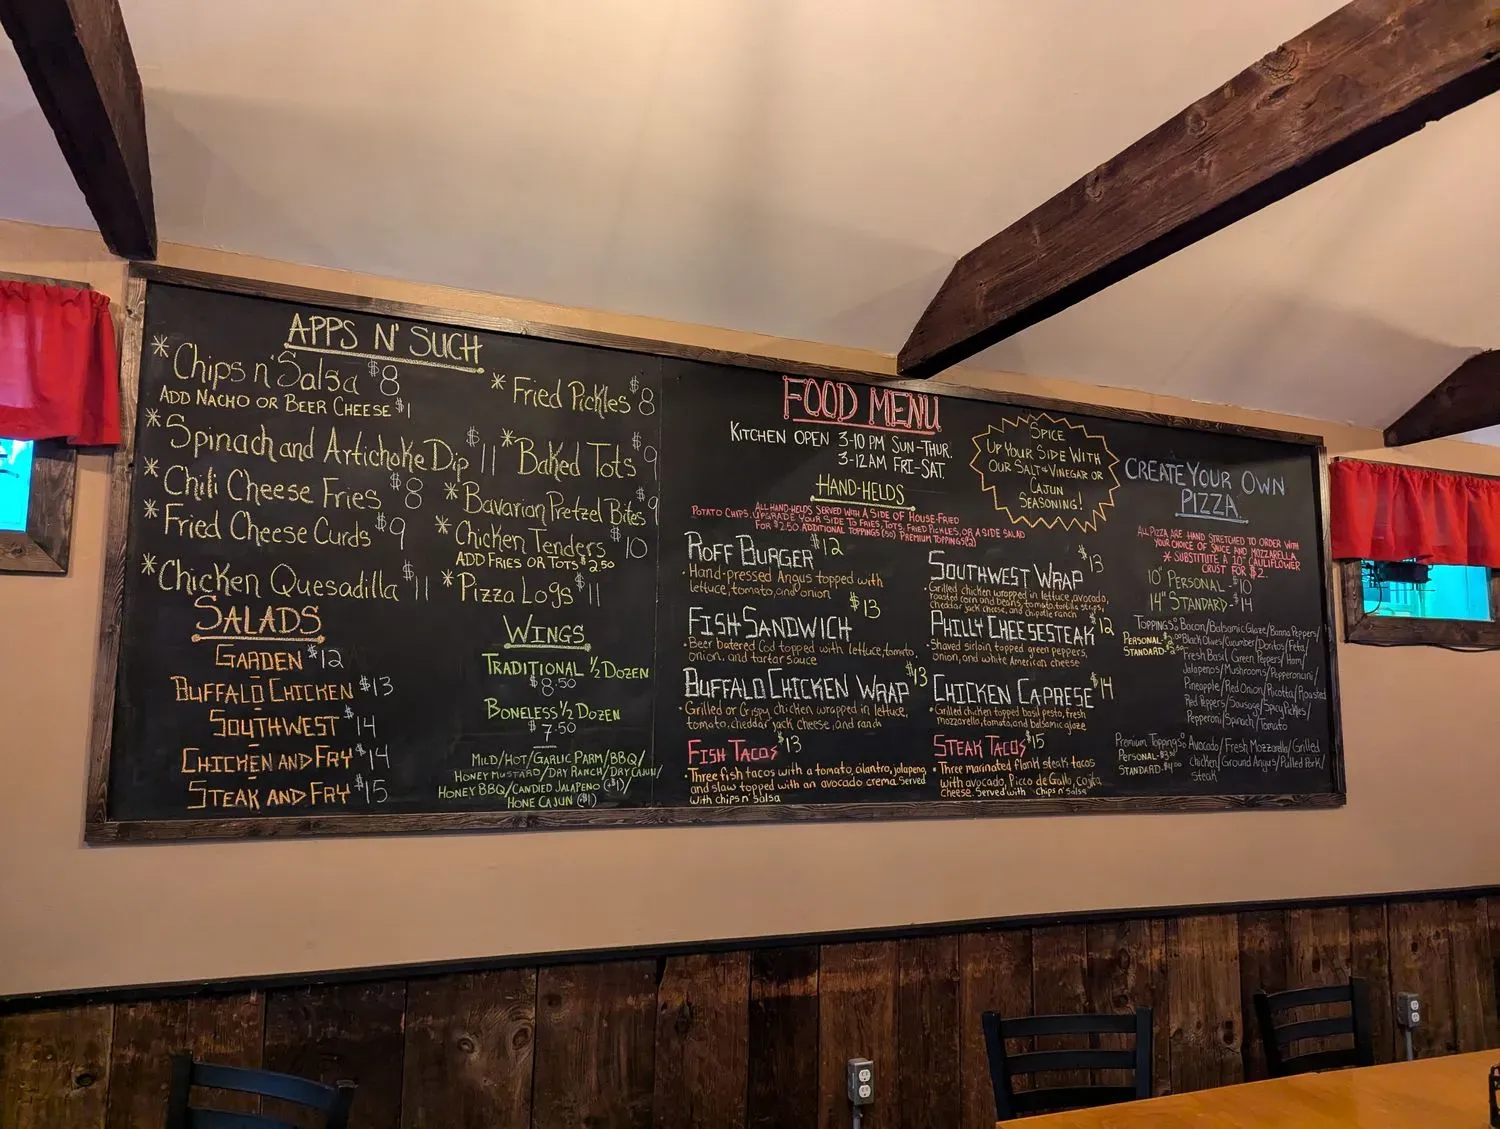 APPS N' SUCH
* Chips n' Salsa $8
ADD NACHO OR BEER CHEESE $1
* Spinach and Artichoke Dip $11
* Chili Cheese Fries $8
* Fried Cheese Curds $9
* Chicken Quesadilla $11
* Fried Pickles $8
* Baked Tots $9
* Bavarian Pretzel Bites $9
* Chicken Tenders $10
ADD FRIES OR TOTS $2.50
* Pizza Logs $11
SALADS
GARDEN $12
BUFFALO CHICKEN $13
SOUTHWEST $14
CHICKEN AND FRY $14
STEAK AND FRY $15
WINGS
TRADITIONAL 1/2 DOZEN
$8.50
BONELESS 1/2 DOZEN
$7.50
MILD/HOT/GARLIC PARM/BBQ/
HONEY MUSTARD/DRY RANCH/DRY CAJUN/
HONEY BBQ/CANDIED JALAPENO (+$1)/
HONE CAJUN (+$1)
FOOD MENU
KITCHEN OPEN 3-10 PM SUN-THUR.
3-12AM FRI-SAT.
SPICE
UP YOUR SIDE WITH
OUR SALT + VINEGAR OR
CAJUN
SEASONING!
HAND-HELDS
ALL HAND-HELDS SERVED WITH A SIDE OF HOUSE-FRIED
POTATO CHIPS. UPGRADE YOUR SIDE TO FRIES, TOTS, FRIED PICKLES, OR A SIDE SALAD
FOR $2.50 ADDITIONAL TOPPINGS PREMIUM TOPPINGS
ROFF BURGER $12
• Hand-pressed Angus topped with
lettuce, tomato, and onion
FISH SANDWICH $13
• Beer batered Cod topped with lettuce, tomato,
onion, and tartar sauce
BUFFALO CHICKEN WRAP $13
• Grilled or Crispy chicken wrapped in lettuce,
tomato, cheddar jack cheese, and ranch
FISH TACOS $13
• Three fish tacos with a tomato, cilantro, jalapeno,
and slaw topped with an avocado crema. Served
with chips n' Salsa
SOUTHWEST WRAP $13
• Grilled chicken wrapped in lettuce, avocado,
roasted corn and beans, tomato, tortilla strips,
cheddar jack cheese, and chipotle ranch
PHILLY CHEESESTEAK $12
• Shaved sirloin topped green peppers,
onion, and white American cheese
CHICKEN CAPRESE $14
• Grilled chicken topped basil pesto, fresh
mozzarella, tomato, and balsamic glaze
STEAK TACOS $15
• Three marinated flank steak tacos
with avocado, Picco de Gallo, Cojita
Cheese. Served with chips n' Salsa
CREATE YOUR OWN
PIZZA
ALL PIZZA ARE HAND STRETCHED TO ORDER WITH
YOUR CHOICE OF SAUCE AND MOZZARELLA
* SUBSTITUTE A 10" CAULIFLOWER
CRUST FOR $2.
10" PERSONAL - $10
14" STANDARD - $14
TOPPINGS: Bacon/Balsamic Glaze/Banna Peppers/
PERSONAL - Black Olives/Cucumber/Doritos/Feta/
STANDARD - Fresh Basil Green Peppers/Ham/
Jalapenos/Mushrooms/Pepperoncini/
Pineapple/Red Onion/Ricotta/Roasted
Red Peppers/Sausage/Spicy Pickles/
Pepperoni/Spinach/Tomato
Premium Toppings: Avocado/Fresh Mozzarella/Grilled
PERSONAL - Chicken/Ground Angus/Pulled Pork/
STANDARD - Steak